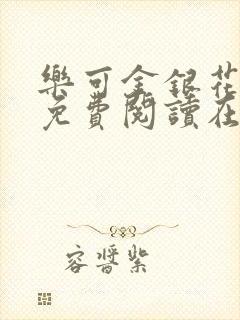 樂可金銀花
免費閱讀在
容醬紫